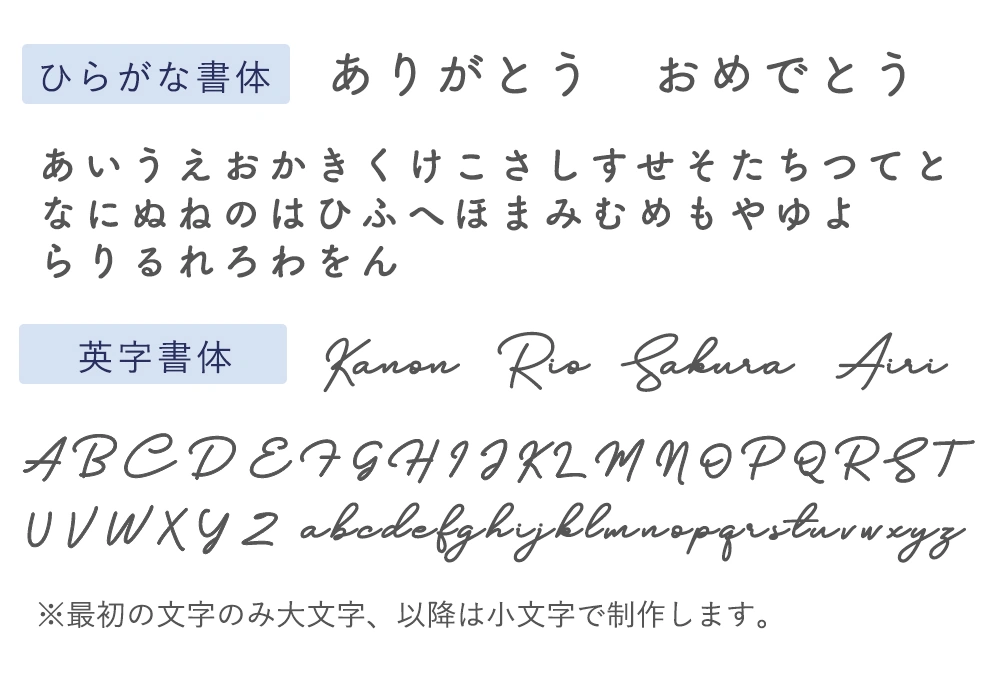 ひらがな書体 ありがとう おめでとう
あいうえおかきくけこさしすせそたちつてと
なにぬねのはひふへほまみむめもやゆよ
らりるれろわをん
英字書体 Kanon Rio Sakura Airi
ABCDEFGHIJKLMNOPQRST
UVWXYZ abcdefghijklmnopqrstuvwxyz
※最初の文字のみ大文字、以降は小文字で制作します。